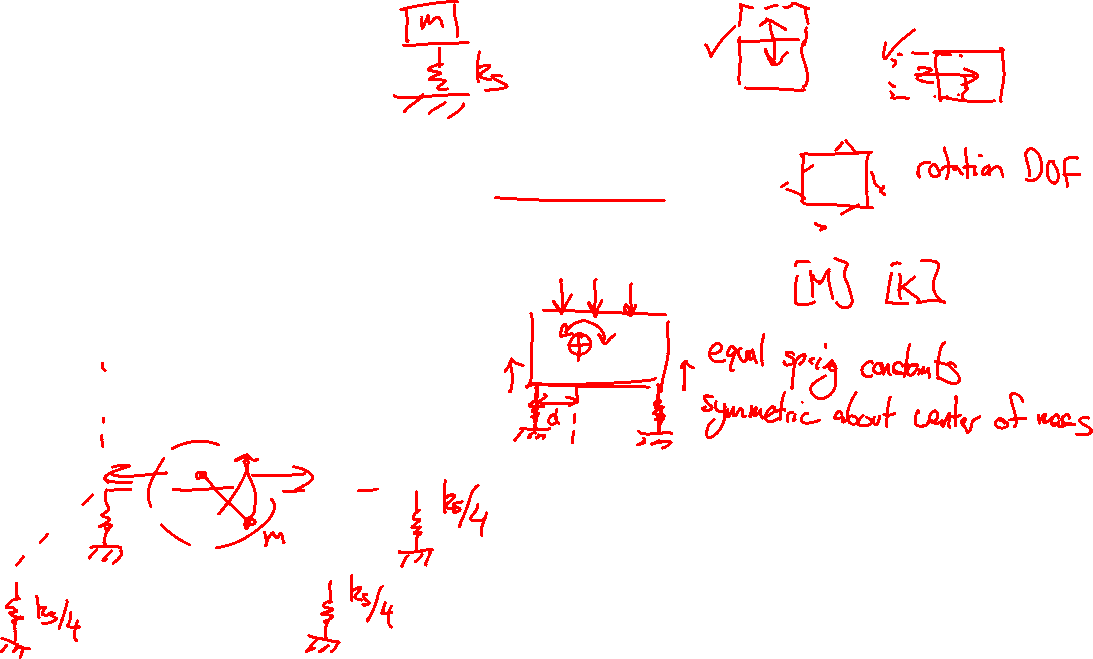 m
ks
rotation DOF
[M] [K]
equal spring constants
symmetric about center of mass
d
m
ks/4
ks/4
ks/4